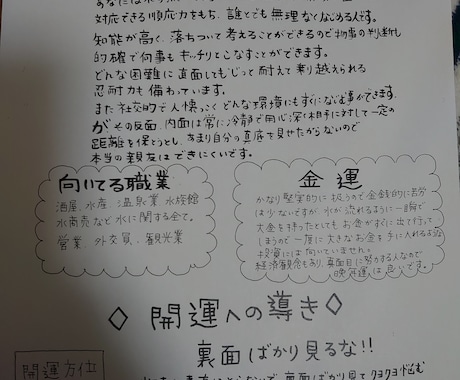 対応できる順応力をもち、誰とでも無理なくなじめる人です。
知能が高く、落ちついて考えることができるので物事の判断し
的確で何事もキッチリとこなすことができます。
どんな困難に直面してもじって耐えて乗り越えられる
忍耐力も備わっています。
また社交的で人懐っこくどんな環境にもすぐになじむ事ができます。
が その反面、内面は常に冷静で用心深く相手に対して一定の
距離を保とうとし、あまり自分の真底を見せたがらないので
本当の親友はできにくいです。
向いてる職業
酒屋 水産 温泉業 水族館
水商売など水に関する全て。
営業、外交員、観光業
金運
かなり堅実的に扱うので金銭的に苦労
は少ないですが 水が流れるように一晩で
大金を持ったとしてもお金がすぐに出て行って
しまうので一度に大きなお金を手に入れる
投資には向いていません。
経済観念もあり、真面目に努力する人なので
晩年運は良いです。
◇ 開運への導き ◇
裏面ばかり見るな!!
開運方位
裏面ばかり見てクヨクヨ悩む